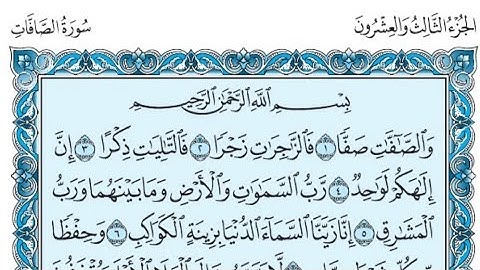 الجُزْءُ الثَّالِثُ وَالعِشْرُونَ
سُورَةُ الصَّافَّاتِ
بِسْمِ اللَّهِ الرَّحْمَٰنِ الرَّحِيمِ
وَالصَّٰٓفَّٰتِ صَفًّا ١ فَالزَّٰجِرَٰتِ زَجْرًا ٢ فَالتَّٰلِيَٰتِ ذِكْرًا ٣ إِنَّ
إِلَٰهَكُمْ لَوَٰحِدٌ ٤ رَّبُّ السَّمَٰوَٰتِ وَالْأَرْضِ وَمَا بَيْنَهُمَا وَرَبُّ
الْمَشَٰرِقِ ٥ إِنَّا زَيَّنَّا السَّمَآءَ الدُّنْيَا بِزِينَةٍ الْكَوَاكِبِ ٦ وَحِفْظًا